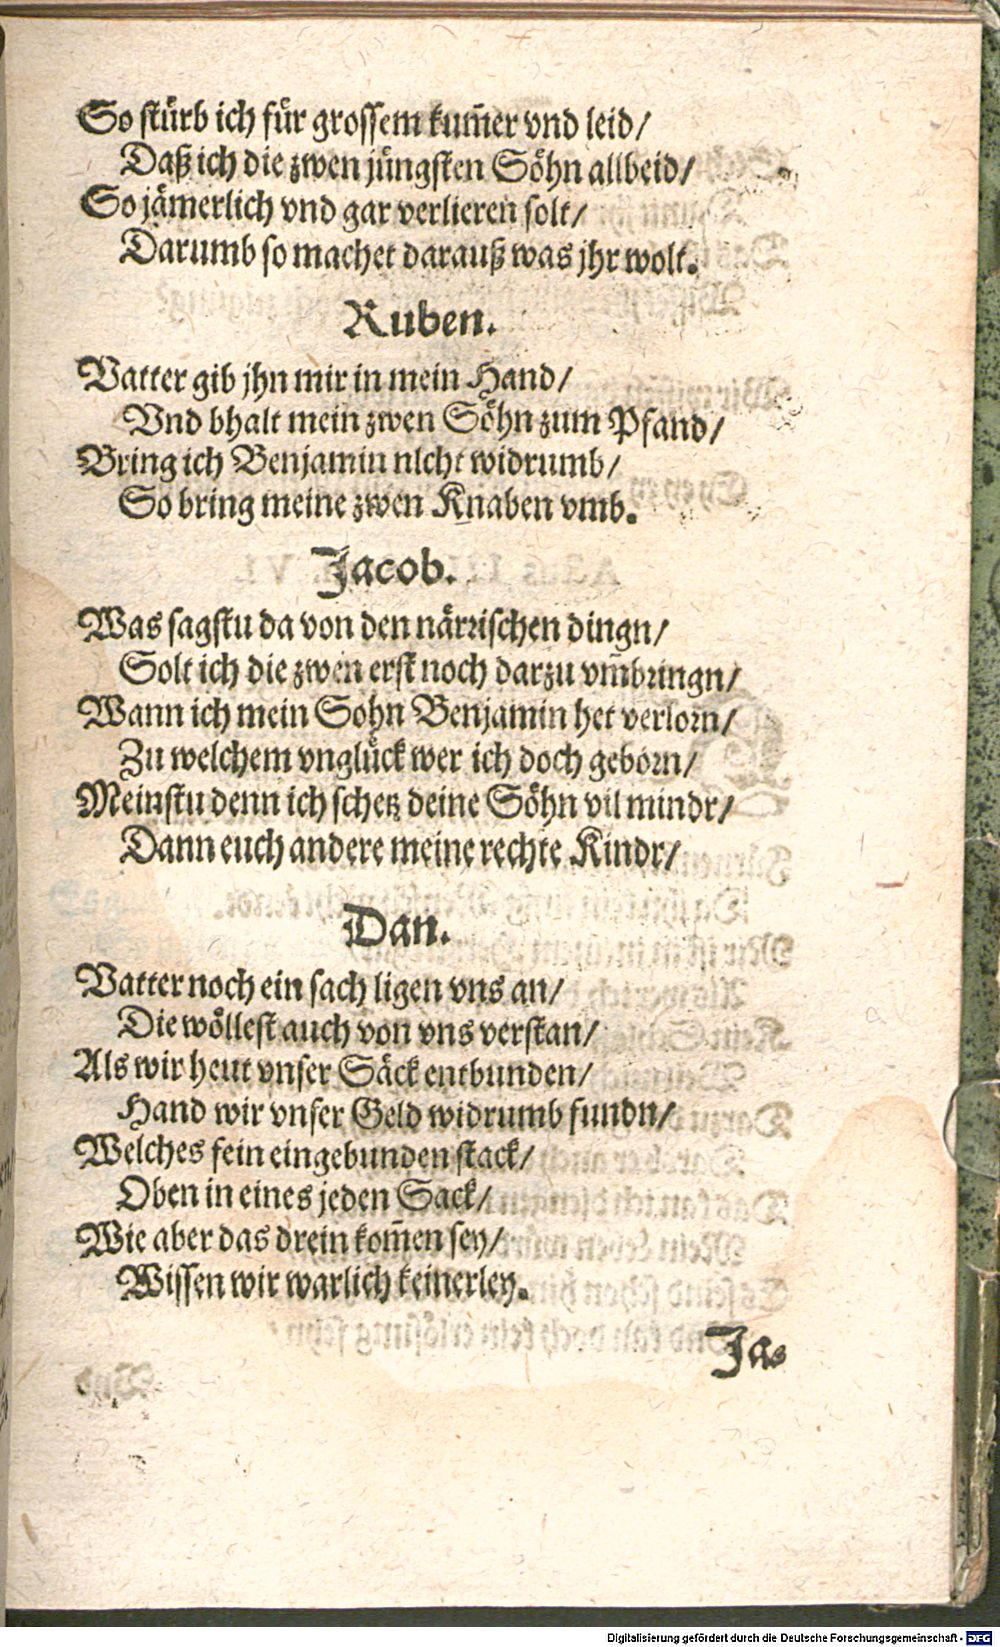 So stürb ich für grossem kum̄er vnd leid/
Daß ich die zwen jüngsten Söhn allbeid/
So jämerlich vnd gar verlieren solt/
Darumb so machet darauß was jhr wolt.
Ruben.
Vatter gib jhn mir in mein Hand/
Vnd bhalt mein zwen Söhn zum Pfand/
Bring ich Benjamin nicht widrumb/
So bring meine zwen Knaben vmb.
Jacob.
Was sagstu da von den närrischen dingn/
Solt ich die zwen erst noch darzu vm̄bringn/
Wann ich mein Sohn Benjamin het verlorn/
Zu welchem vnglück wer ich doch geborn/
Meinstu denn ich schetz deine Söhn vil mindr/
Dann euch andere meine rechte Kindr/
Dan.
Vatter noch ein sach ligen vns an/
Die wöllest auch von vns verstan/
Als wir heut vnser Säck entbunden/
Hand wir vnser Geld widrumb fundn/
Welches fein eingebunden stack/
Oben in eines jeden Sack/
Wie aber das drein kom̄en sey/
Wissen wir warlich keinerley.
Jas
Digitalisierung gefördert durch die Deutsche Forschungsgemeinschaft - DFG